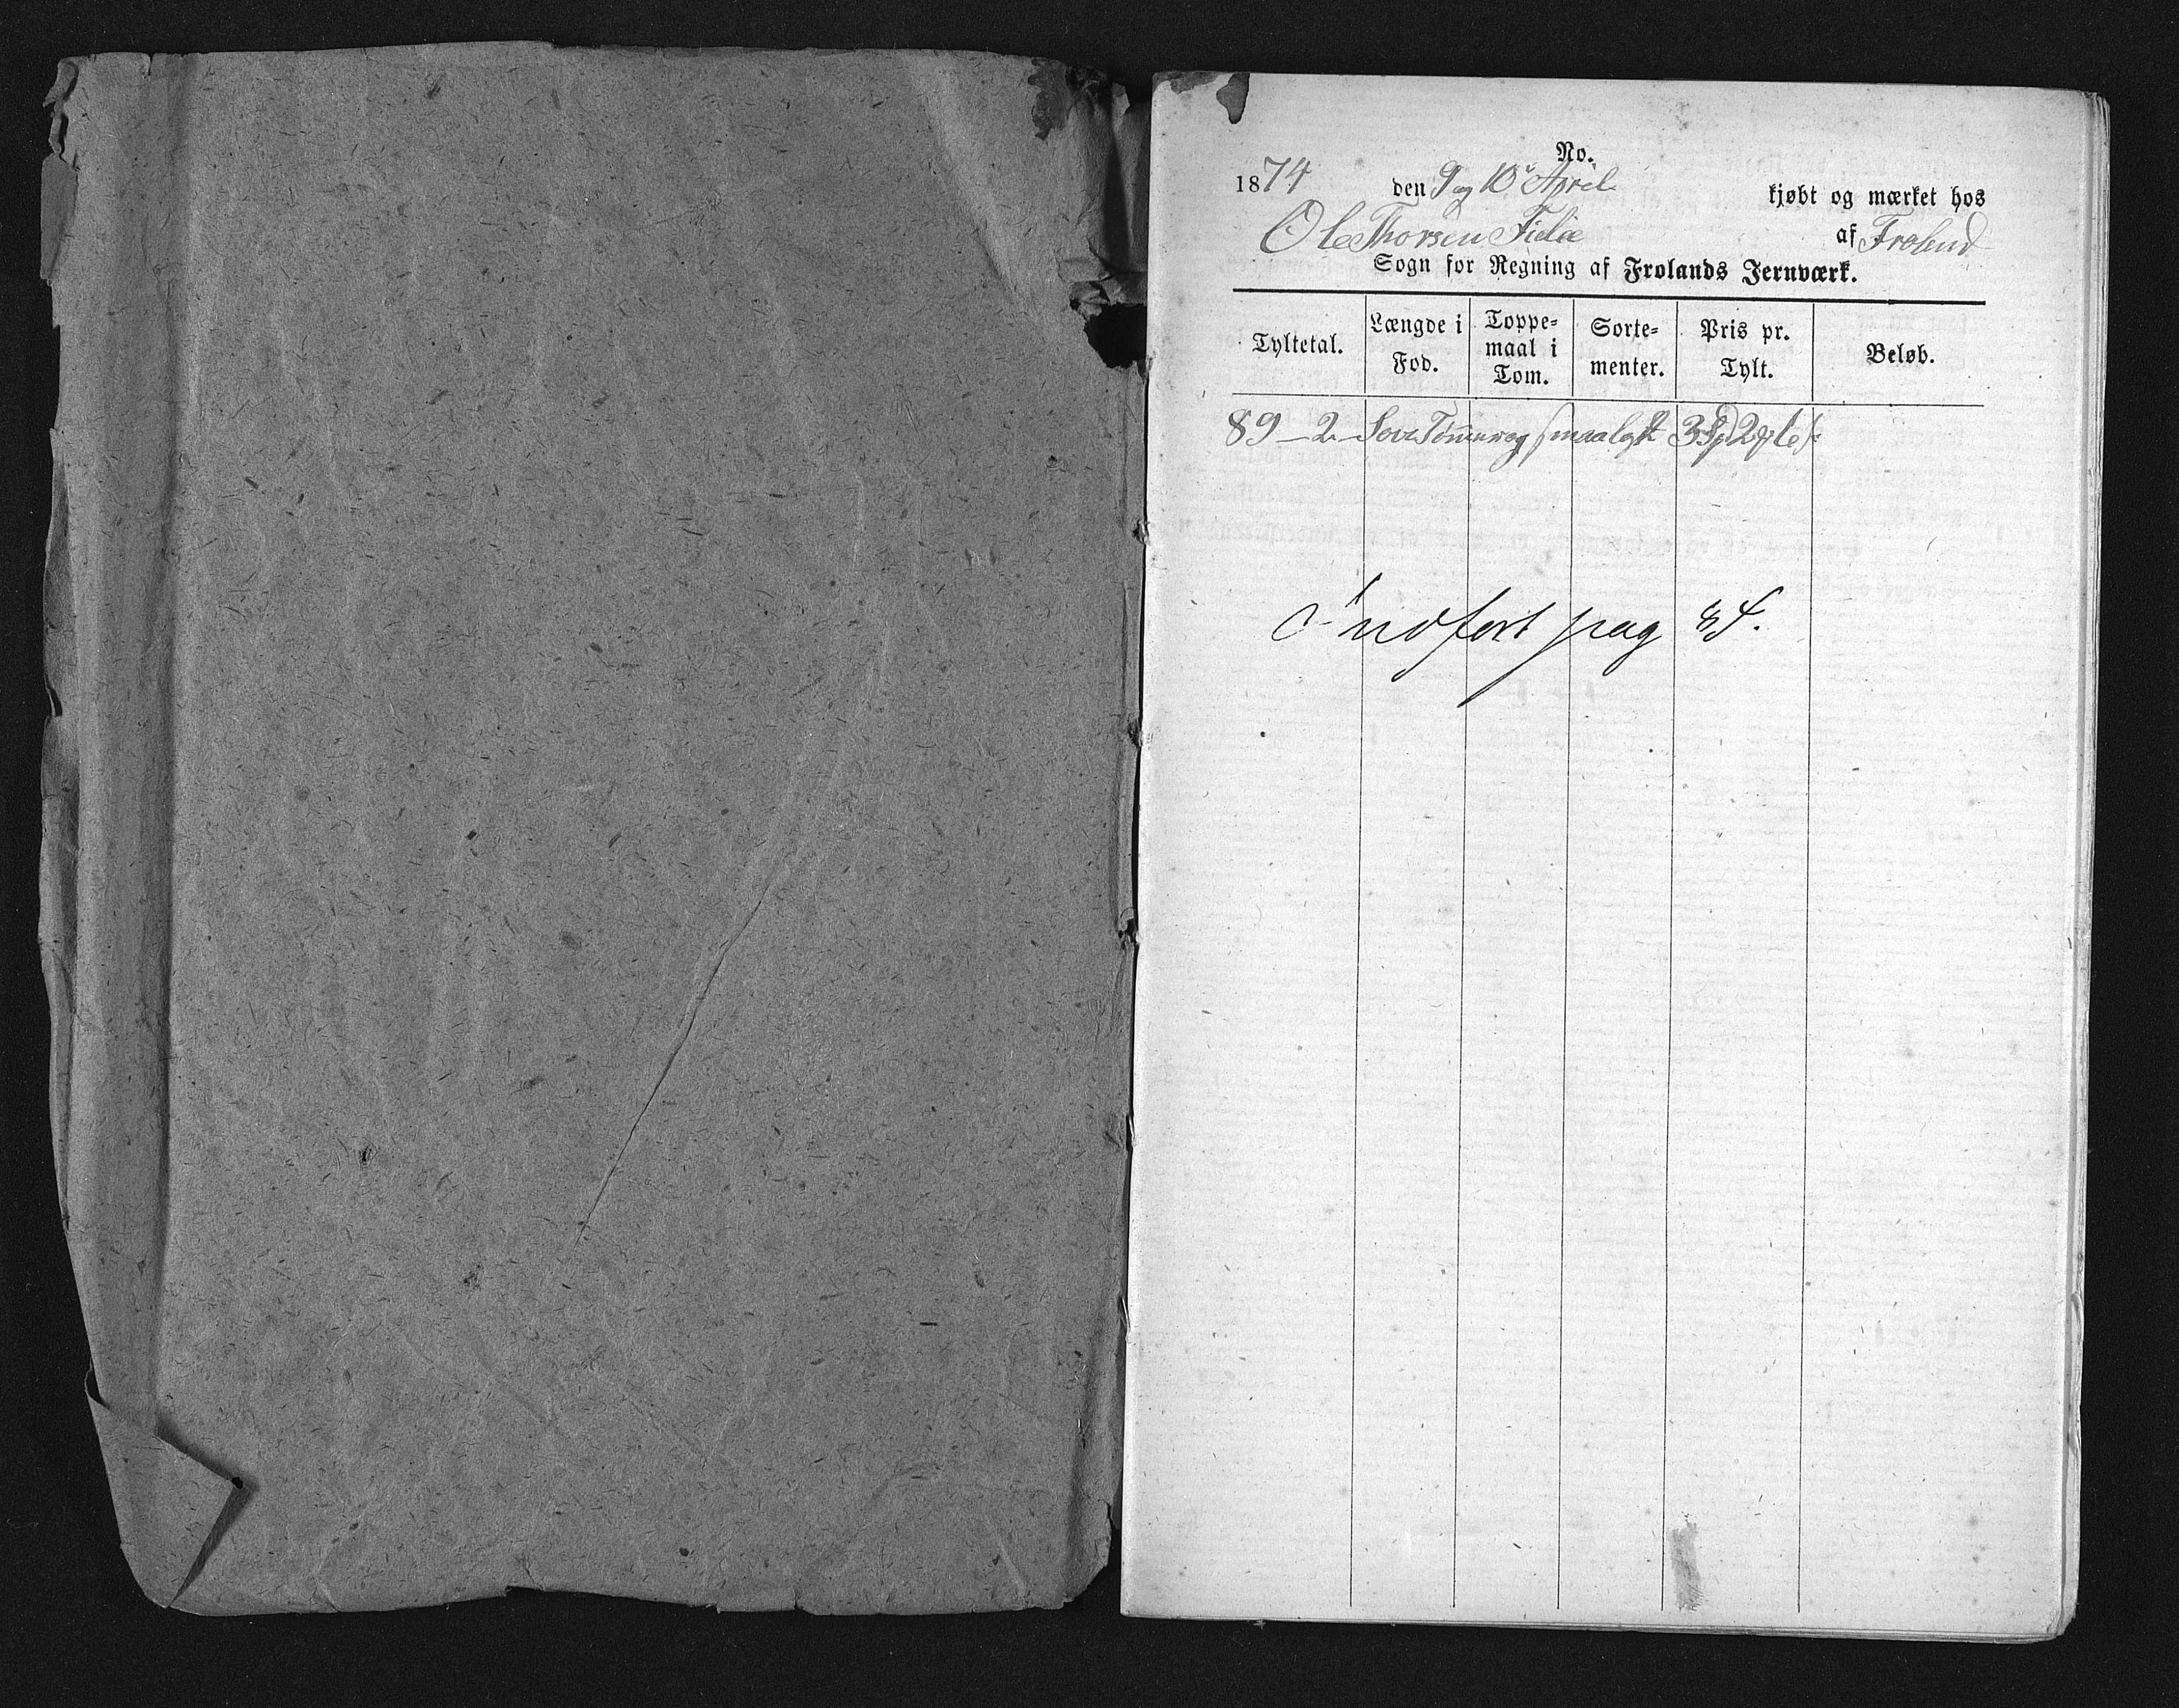 No.
1874 den 9 og 10 April kjøbt og mærket hos
Ole Thorsen af Froland
Sogn for Regning af Frolands Jernværk.
Tyltetal. Længde i Fod. Toppemaal i Tom. Sortementer. Pris pr. Tylt. Beløb.
89 – 2 – Tømer og smaalast 3 Spd 2
Indført pag 84.